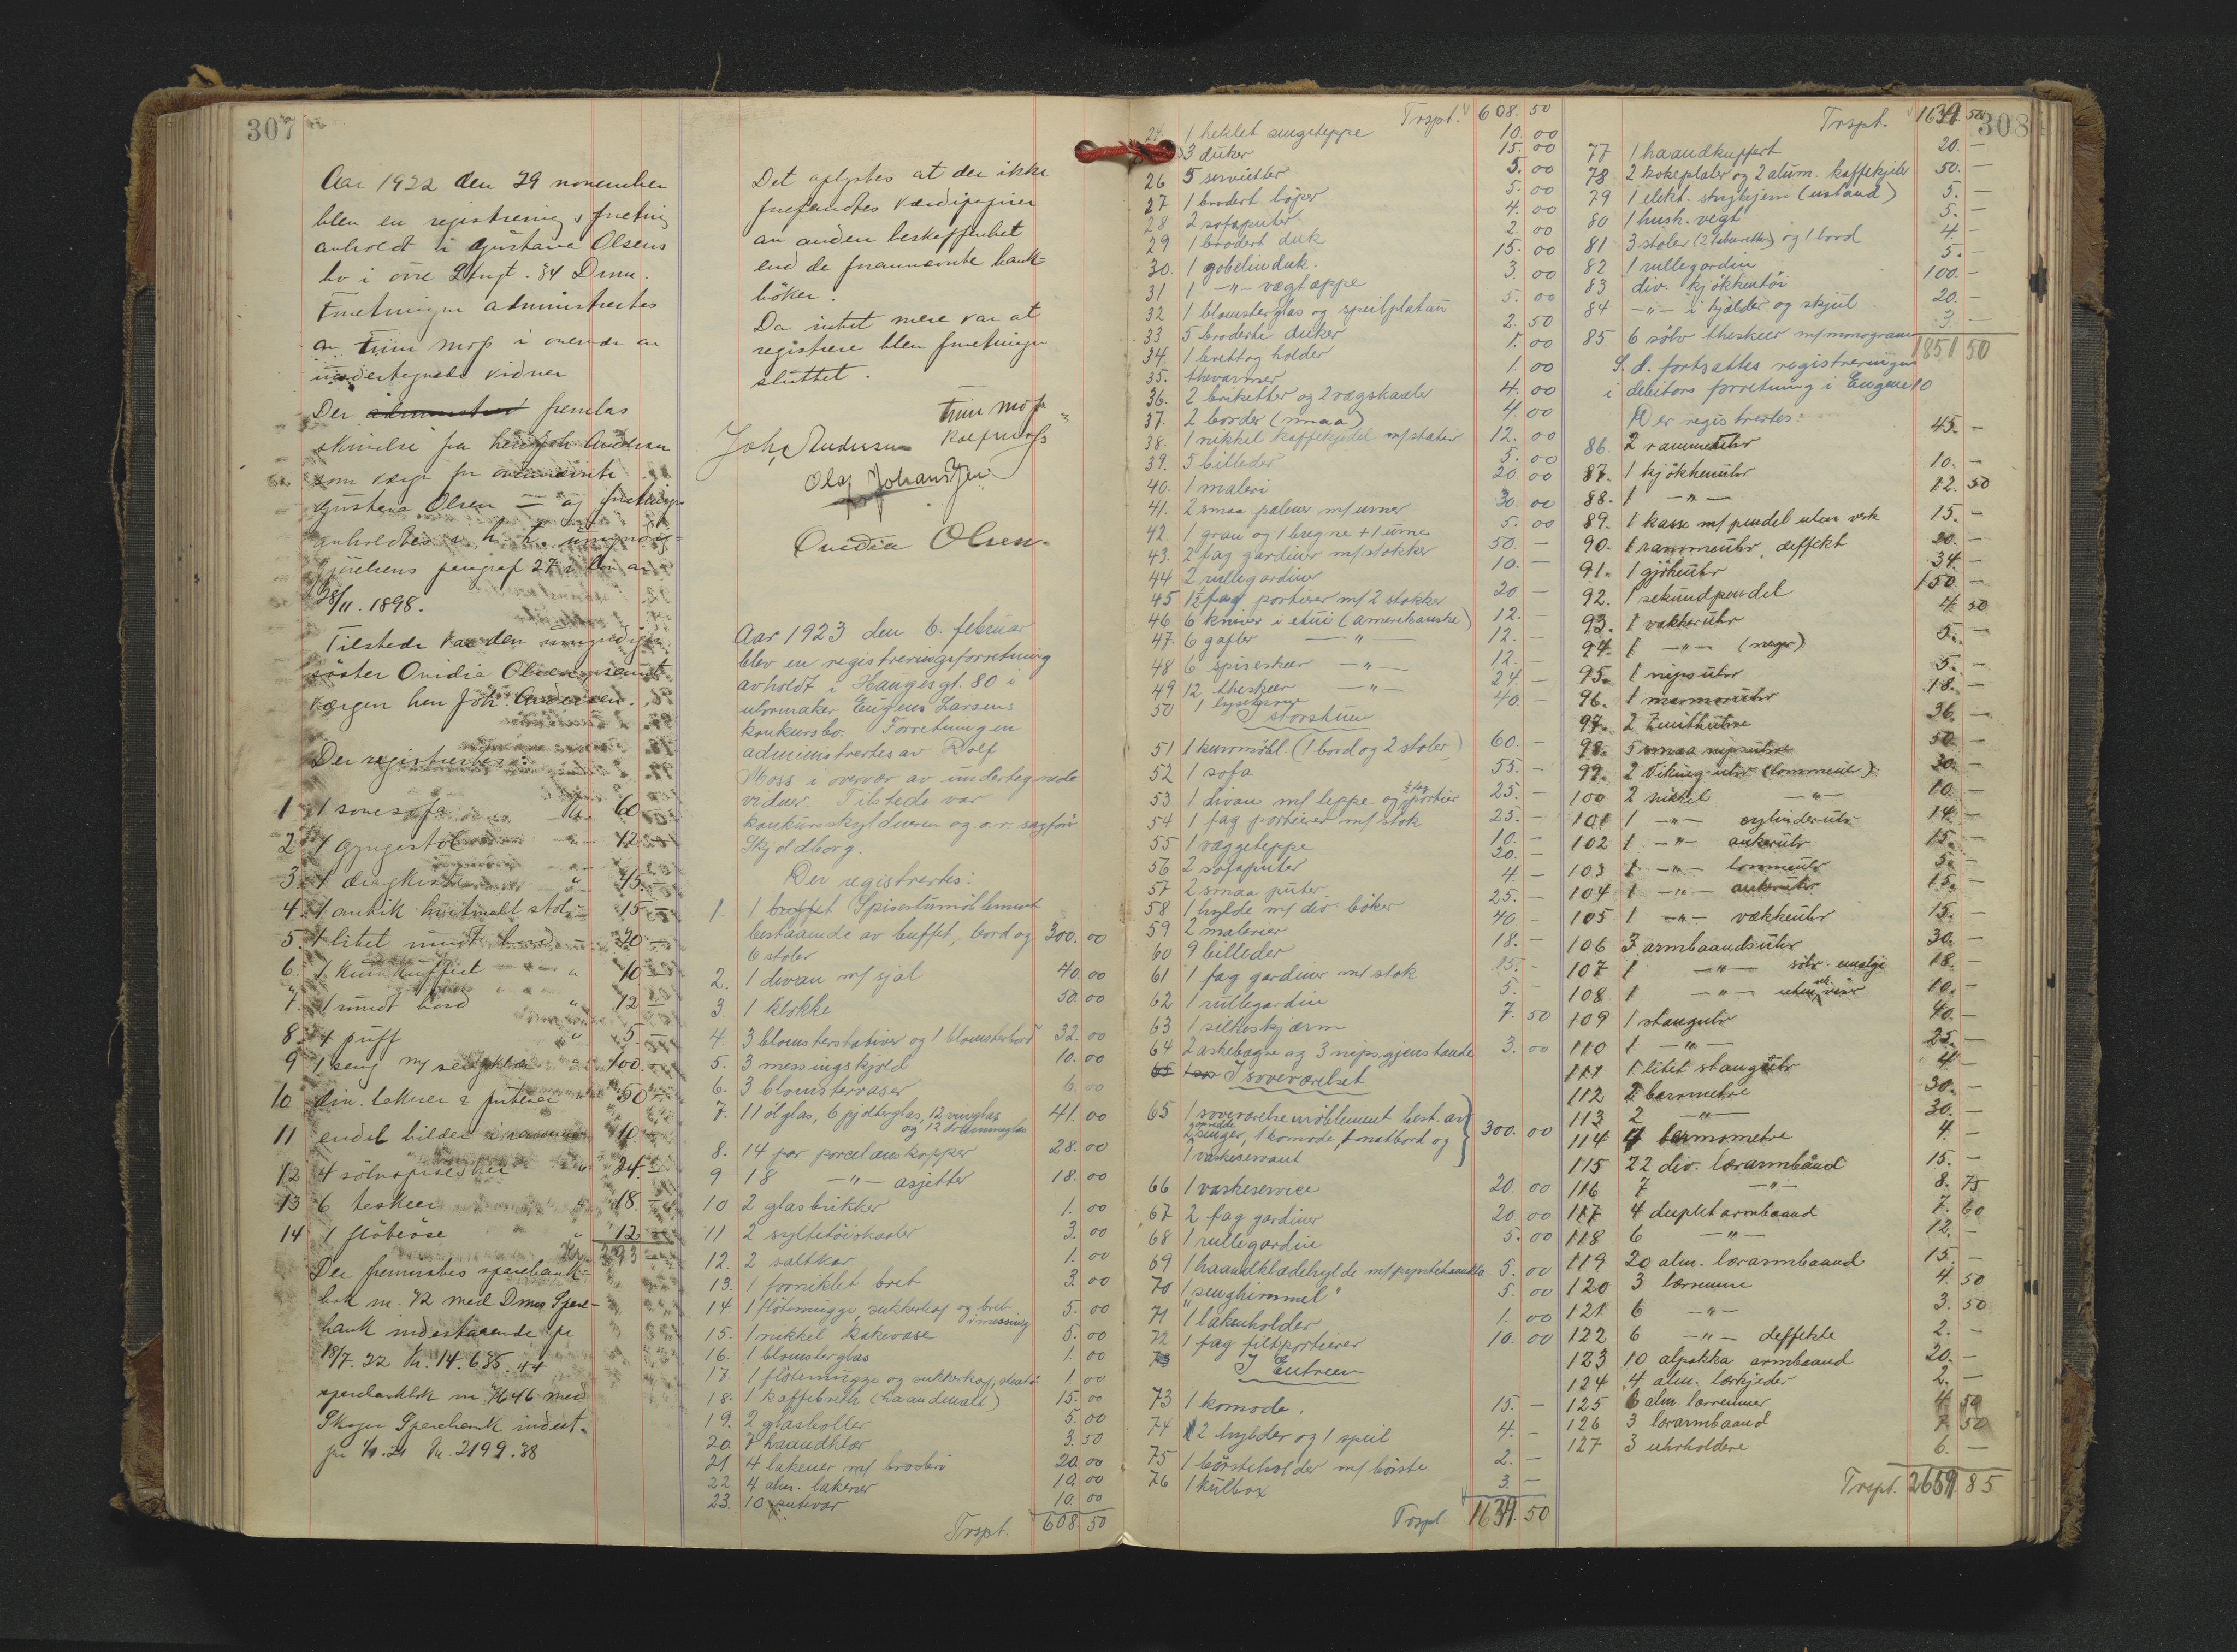 307
Aar 1922 den 29 november
blev en registrering s forretning
avholdt i Gustava Olsens
bo i övre Storgt. 34 Drmn.
Forretningen administrertes
av Trine Moss i overvær av
undertegnede vidner
Der fremlas
skrivelse fra herr Joh. Andersen
som verge for ovennævnte
Gustava Olsen — og forretningen
avholdtes i h. t. umyndig=
gjörelsens paragraf 27 i lov av
28/11. 1898.
Tilstede var den umyndiges
söster Ovidia Olsen, samt
værgen herr Joh. Andersen.
Der registrertes:
1 1 sovesofa Kr. 60 —
2 1 gyngestol " 12 —
3. 1 dragkiste " 45. —
4. 1 antik hvitmalt stol " 15 —
5. 1 litet rundt bord " 20 —
6. 1 kuffert " 10 —
7. 1 rundt bord " 12 —
8. 1 puff " 5. —
9 1 seng m/ sengklær " 100. —
10 div. lakner & putevar " 50 —
11 endel bilder i rammer " 10. —
12 4 sölvspiseskeer " 24. —
13 6 teskeer " 18. —
14 1 flöteöse " 12 —
Kr. 393 —
Der fremvistes sparebank=
bok nr. 72 med Drmns Spare-
bank indestaaende pr
18/7. 22 Kr. 14.635.44
sparebankbok nr 7646 med
Skoger Sparebank indest.
pr 1/1. 21 Kr. 2199.38
Det oplystes at der ikke
forefandtes værdipapirer
av anden beskaffenhet
end de foran nævnte bank=
böker.
Da intet mere var at
registrere blev forretningen
sluttet.
Trine Moss
Joh. Andersen Rolf Moss
Olaf Johansen
Ovidia Olsen.
Aar 1923 den 6. februar
blev en registreringsforretning
avholdt i Haugesgt. 80 i
uhrmaker Eugen Larsens
konkursbo. Forretningen
administrertes av Rolf
Moss i overvær av undertegnede
vidner. Tilstede var
konkursskyldneren og o.r. sagförer
Skjoldborg.
Der registrertes:
1. 1 buffet Spisestuemöblement
bestaaende av buffet, bord og 300. 00
6 stoler
2. 1 divan m/ sjal 40 00
3. 1 klokke 50. 00
4. 3 blomsterstativer og 1 blomsterbord 32. 00
5. 3 messingskjold 10. 00
6. 3 blomstervaser 6. 00
7. 11 ölglas, 6 pjolterglas, 12 vinglas 41. 00
og 12 drammeglas
8. 14 par porcelænskopper 28. 00
9 18 —"— asjetter 18. 00
10 2 glasbrikker 1. 00
11 2 syltetöiskaaler 3. 00
12. 2 saltkar 1. 00
13. 1 forniklet bret 3. 00
14. 1 flötemugge, sukkerkop og bret i messing 5. 00
15. 1 nikkel kakevase 5. 00
16. 1 blomsterglas 1. 00
17. 1 flötemugge og sukkerkop, 1. 00
18. 1 kaffebrett (haandmalt) 15. 00
19. 2 glasboller 5. 00
20 7 haandklær 3. 50
21 4 lakener m/ broderi 20. 00
22 4 alm. lakener 10. 00
23. 10 putevar 10. 00
Trspt. 608. 50
Trspt. 608. 50
24. 1 heklet sengeteppe 10. 00
3 duker 15. 00
26 5 servietter 5. 00
27 1 brodert löper 5. 00
28 2 sofaputer 4. 00
29 1 brodert duk 2. 00
30. 1 gobelinduk. 15. 00
31 1 —"— vægtæppe 3. 00
32 1 blomsterglas og speilplatau 5. 00
33 5 broderte duker 2. 50
34. 1 brett og holder 1. 00
35. thevarmer 1. 00
36. 2 briketter og 2 vægskaaler 4. 00
37. 2 border (smaa) 4. 00
38. 1 nikkel kaffekjedel m/stativ 12. 00
39. 5 billeder 5. 00
40. 1 maleri 20. 00
41. 2 smaa palmer m/urner 30. 00
42. 1 gran og 1 bregne + 1 urne 5. 00
43. 2 fag gardiner m/stokker 50. —
44 2 rullegardiner 10. —
45 1½ fag portierer m/ 2 stokker 20 —
46 6 kniver i etui (amerikanske) 12. —
47. 6 gafler —"— 12. —
48 6 spiseskeer —"— 12. —
49 12 theskeer —"— 24. —
50 1 lysekrone 40 —
I storstuen
51 1 kurvmöbl. (1 bord og 2 stoler) 60. —
52 1 sofa 55. —
53 1 divan m/ teppe og ½ fag portier 25. —
54 1 fag portierer m/ stok 25. —
55 1 væggeteppe 10. —
56 2 sofaputer 20. —
57 2 smaa puter 4 —
58 1 hylde m/ div. böker 25. —
59 2 malerier 40. —
60 9 billeder 18. —
61 1 fag gardiner m/ stok 15. —
62 1 rullegardin 5. —
63 1 silkeskjærm 7. 50
64 2 askebægre og 3 nipsgjenstande 3. 00
65 I soveværelset
65 1 soveværelsemöblement best. av
2 senger, 1 komode, 1 natbord og 300. 00
1 vaskeservant
66 1 vaskeservice 20. 00
67 2 fag gardiner 20. 00
68 1 rullegardin 5. 00
69 1 haandklædehylde m/pyntehaandkl. 5. 00
70 1 "senghimmel" 5. 00
71 1 lakenholder 1. 00
72 1 fag filtportierer 10. 00
I Entreen
73 1 komode. 15. —
74 2 hylder og 1 speil 4. —
75 1 börsteholder m/ börste 2. —
76 1 kulbox 3. —
Trspt 1639. 50
308
Trspt. 1639. 50
77 1 haandkuffert 20. —
78 2 kokeplater og 2 alum. kaffekjeler 50. —
79 1 elekt. strykejern (ustand) 5. —
80 1 hush. vegt 5. —
81 3 stoler (2 taburetter) og 1 bord 4. —
82 1 rullegardin 5. —
83 div. kjökkentöi 100. —
84 —"— i kjelder og skjul 20. —
85 6 sölv theskeer m/monogram 3. —
1851 50
S. d. fortsattes registreringen
i debitors forretning i Engene 10
Der registrertes:
86. 2 rammeuhr 45. —
87. 1 kjökkenuhr 10. —
88. 1 —"— 12. 50
89. 1 kasse m/ pendel uten verk 15. —
90. 1 rammeuhr, deffekt 20. —
91. 1 gjökeuhr 34. —
92. 1 sekundpendel 150. —
93. 1 vækkeruhr 4. 50
94. 1 —"— (neger) 5. —
95. 1 nipsuhr 5. —
96. 1 marmoruhr 18. —
97. 2 Zenithuhre 36. —
98. 5 smaa nipsuhre 50. —
99. 2 Viking-uhr (lommeuhr) 30. —
100 2 nikkel —"— 10. —
101 1 —"— cylinderuhr 14. —
102 1 —"— ankeruhr 15. —
103 1 —"— lommeuhr 5. —
104 1 —"— ankeruhr 15. —
105 1 —"— vækkeuhr 15. —
106 3 armbaandsuhr 30. —
107 1 —"— sölv emalje 18. —
108 1 —"— uten viser 10. —
109 1 stanguhr 40. —
110 1 —"— 25. —
111 1 litet stanguhr 4 —
112 2 barometre 30. —
113 2 —"— 30. —
114 4 termometre 4. —
115 22 div. lærarmbånd 15. —
116 7 —"— 8. 75
117 4 duplet armbaand 7. 60
118 6 —"— 12. —
119 20 alm. lærarmbaand 15. —
120 3 lærremme 4. 50
121 6 —"— 3. 50
122 6 —"— deffekte 2. —
123 10 alpakka armbaand 20. —
124 4 alm. lærkjeder 2. —
125 6 alm. lærremmer 4. 50
126 3 lærarmbaand 7. 50
127 3 uhrholdere 6. —
Trspt. 2659. 85